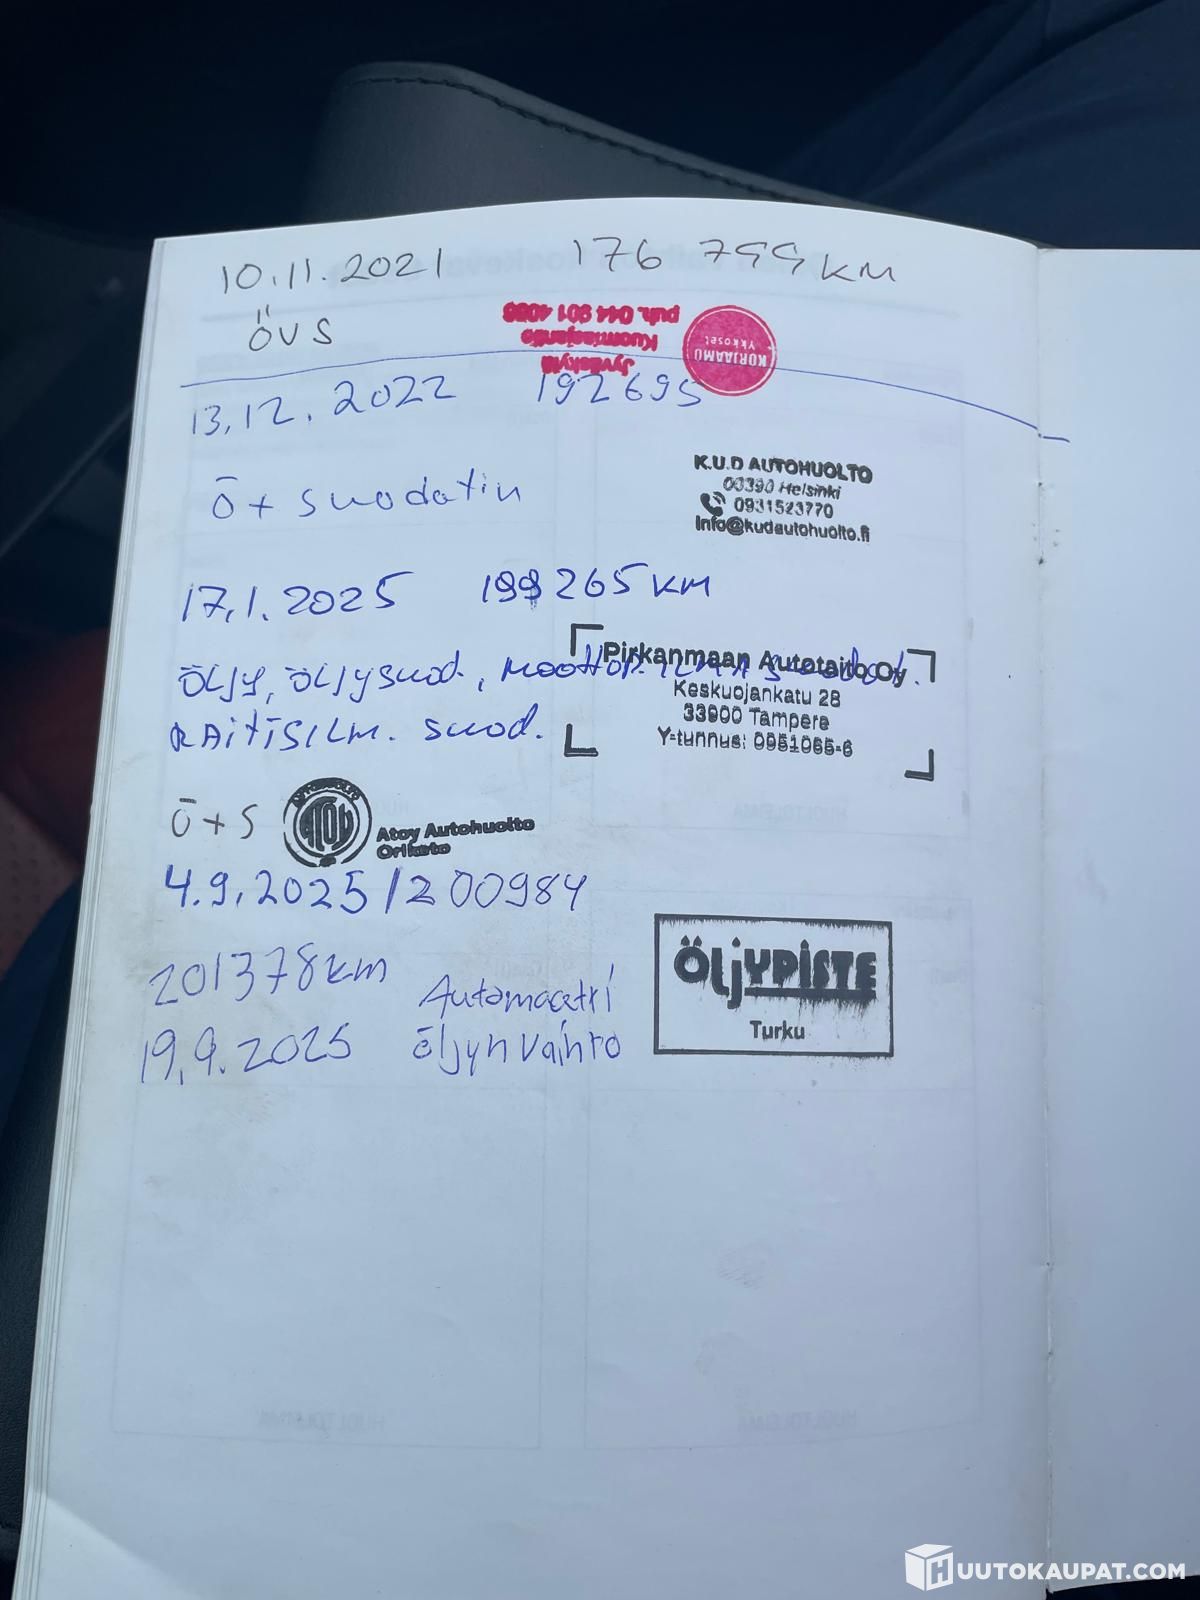 10.11.2021 176 799 KM
ÖVS
puh. 044 901 4086
Kuormaajantie
Jyväskylä
KORJAAMO
YKKÖSET
13.12.2022 192695
Ö + suodatin
K.U.D AUTOHUOLTO
00390 Helsinki
0931523770
Info@kudautohuolto.fi
17.1.2025 199 265 KM
ÖLJY, ÖLJYSUOD., MOOTTOR. ILMASuodat.
RAITISILM. SUOD.
Pirkanmaan Autotaito Oy
Keskuojankatu 28
33900 Tampere
Y-tunnus: 0951065-6
Ö + S
Atoy Autohuolto
Oriketo
4.9.2025 / 200984
201378 km Automaatti
19.9.2025 Öljyn vaihto
ÖLJYPISTE
Turku
HUUTOKAUPAT.COM